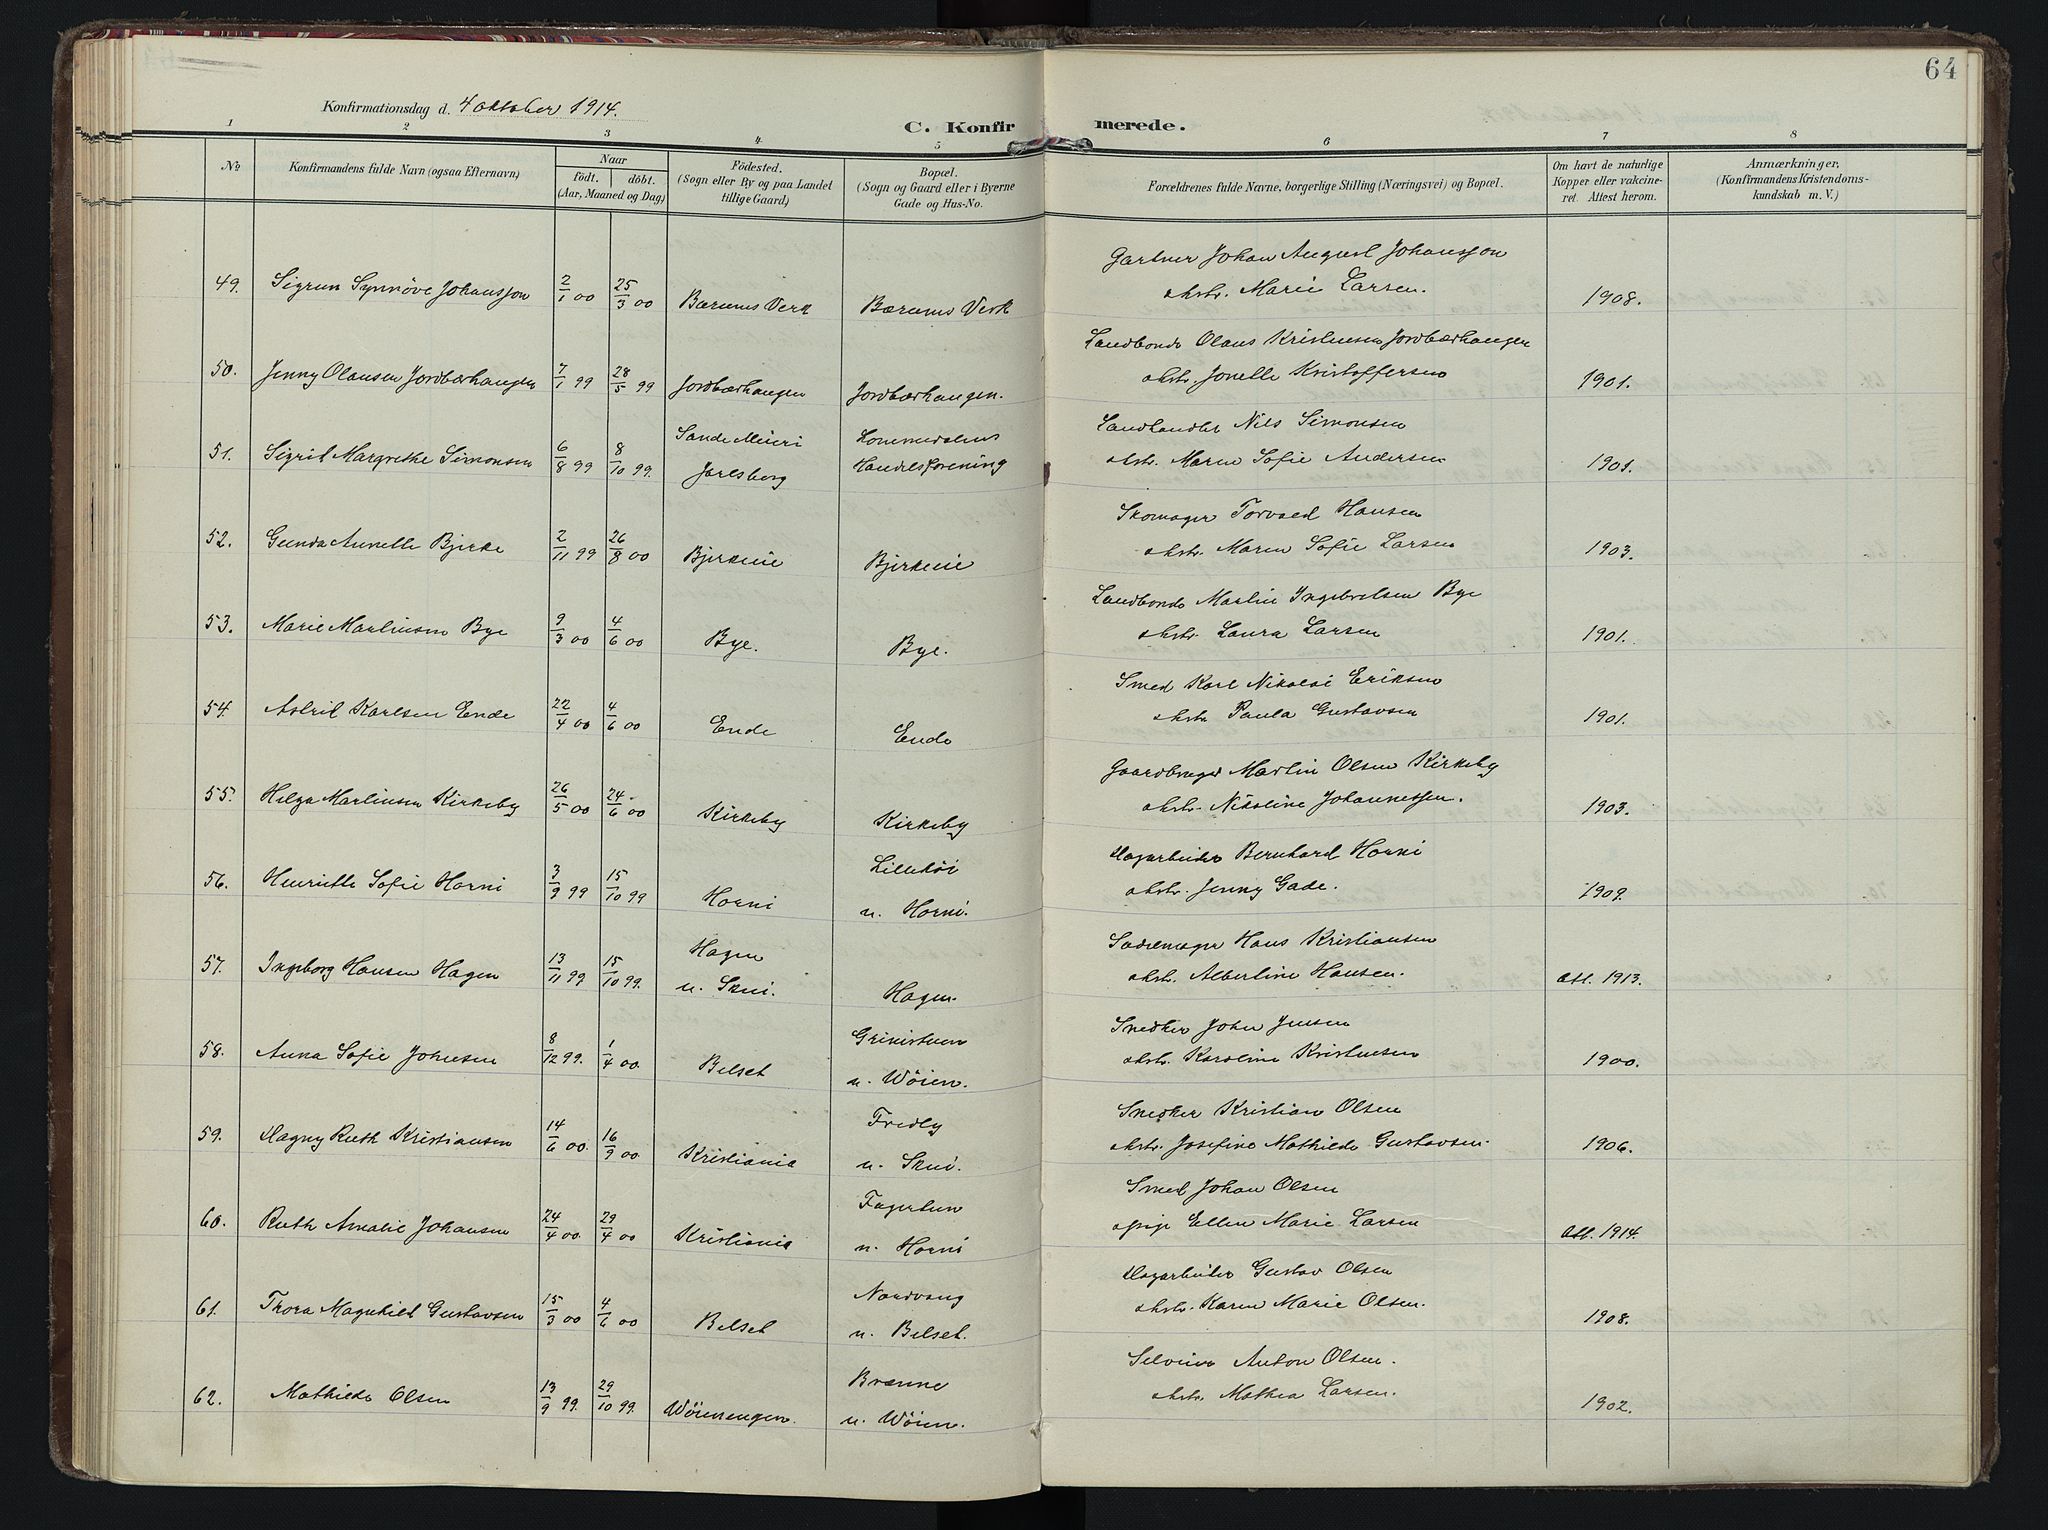 64
Konfirmationsdag d. 4 oktober 1914.
C. Konfirmerede.
1 2 3 4 5 6 7 8
No
Konfirmandens fulde Navn (ogsaa Efternavn)
Naar
födt. döbt.
(Aar, Maaned og Dag)
Födested.
(Sogn eller By og paa Landet
tillige Gaard)
Bopæl.
(Sogn og Gaard eller i Byerne
Gade og Hus-No.
Forældrenes fulde Navne, borgerlige Stilling (Næringsvei) og Bopæl.
Om havt de naturlige
Kopper eller vakcine-
ret. Attest herom.
Anmærkninger,
(Konfirmandens Kristendoms-
kundskab m. V.)
Gartner Johan August Johansson
49. Sigrun Synnöve Johansson 2/1 00 25/3 00 Bærums Verk Bærums Verk økstr. Marie Larsen. 1908.
Landbonde Olaus Kristensen Jordbærhaugen
50. Jenny Olausen Jordbærhaugen 7/1 99 28/5 99 Jordbærhaugen Jordbærhaugen. økstr. Jonette Kristoffersen 1901.
Sande Meieri Lommedalens Landhandler Nils Simonsen
51. Sigrid Margrethe Simonsen 6/8 99 8/10 99. Jarlsberg Handelsforening økstr. Maren Sofie Andersen 1901.
Skomager Torvald Hansen
52. Gunda Annette Bjerke 2/11 99 26/8 00 Bjerkeeie Bjerkeeie økstr. Maren Sofie Larsen 1903.
Landbonde Martin Ingebretsen Bye
53. Marie Martinsen Bye 9/3 00 4/6 00 Bye. Bye. økstr. Laura Larsen 1901.
Smed Karl Nikolai Eriksen
54. Astrid Karlsen Ende 22/4 00 4/6 00 Ende Ende økstr Paula Gustavsen 1901.
Gaardbruger Martin Olsen Kirkeby
55. Helga Martinsen Kirkeby 26/5 00 24/6 00 Kirkeby Kirkeby økstr. Nikoline Johannessen. 1903.
Lillehöi Dagarbeider Bernhard Horni
56. Henriette Sofie Horni 3/9 99 15/10 99 Horni u. Horni. økstr. Jenny Gade. 1909.
Hagen Sadelmager Hans Kristiansen
57. Ingeborg Hansen Hagen 13/11 99 15/10 99. u. Skui. Hagen. økstr. Albertine Hansen. att. 1913.
Grinistuen Snedker John Jensen
58. Anna Sofie Johnsen 8/12 99. 1/4 00. Belset u. Wöien. økstr. Karoline Kristensen 1900.
Fredly Snedker Kristian Olsen
59. Dagny Ruth Kristiansen 14/6 00. 16/9 00. Kristiania u. Skui. økstr. Josefine Mathilde Gustavsen. 1906.
Fagertun Smed Johan Olsen
60. Ruth Amalie Johansen 24/4 00. 29/4 00 Kristiania u. Horni og pige Ellen Marie Larsen att. 1914.
Nordvang Dagarbeider Gustav Olsen
61. Thora Magnhild Gustavsen 15/3 00 4/6 00 Belset u. Belset. økstr. Karen Marie Olsen. 1908.
Brænne Selveier Anton Olsen.
62. Mathilde Olsen 13/9 99. 29/10 99. Wöienengen. u. Wöien. økstr. Mathea Larsen. 1902.